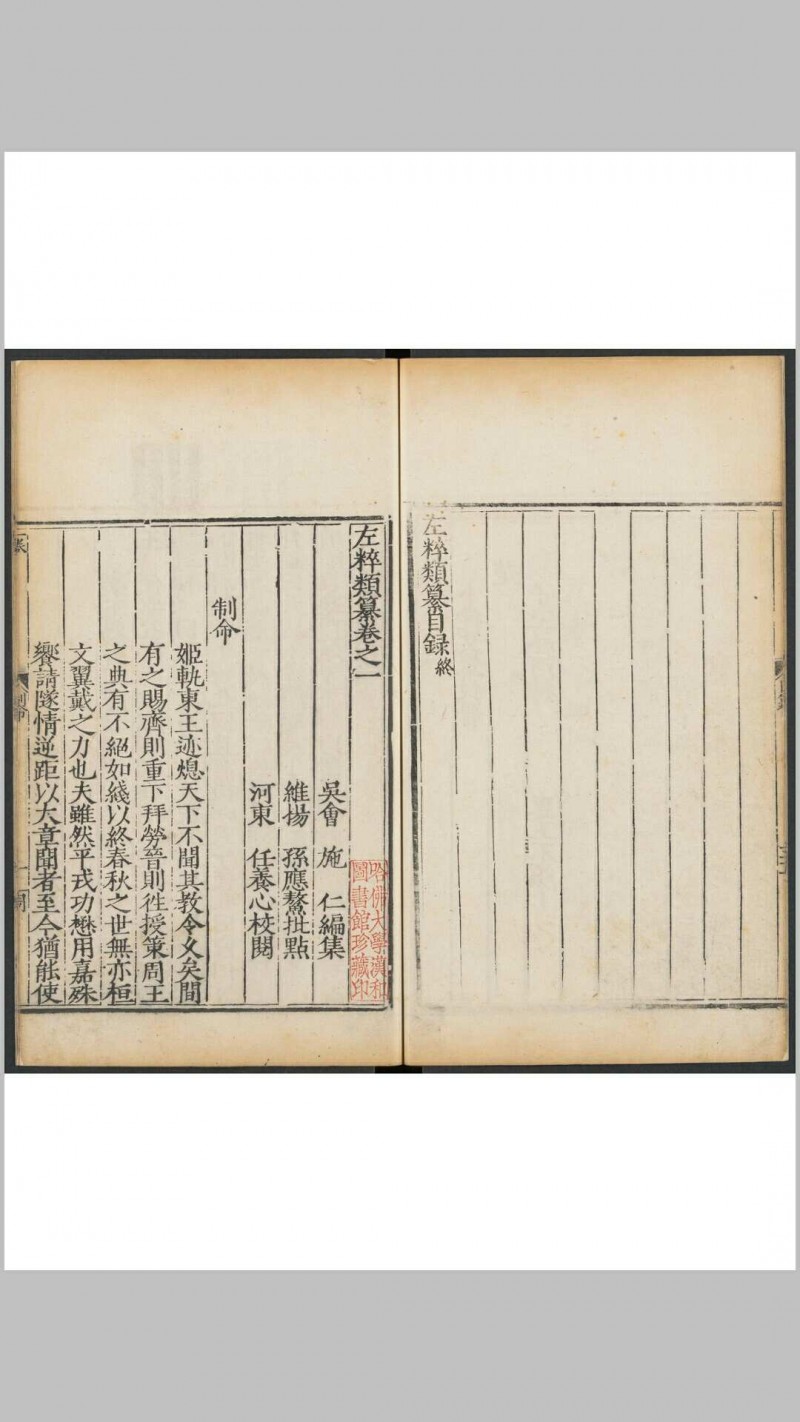 左粹類纂目錄終
左粹類纂卷之一
吳會 施 仁編集
維揚 孫應鰲批點
河東 任養心校閱
哈佛大學漢和
圖書館珍藏印
制命
姬軌東王迹熄天下不聞其教令久矣間
有之賜齊則重下拜勞晉則徃授策周王
之典有不絕如綫以終春秋之世無亦桓
文翼戴之力也夫雖然平戎功懋用嘉殊
饗請隧情逆距以大章聞者至今猶能使
制命